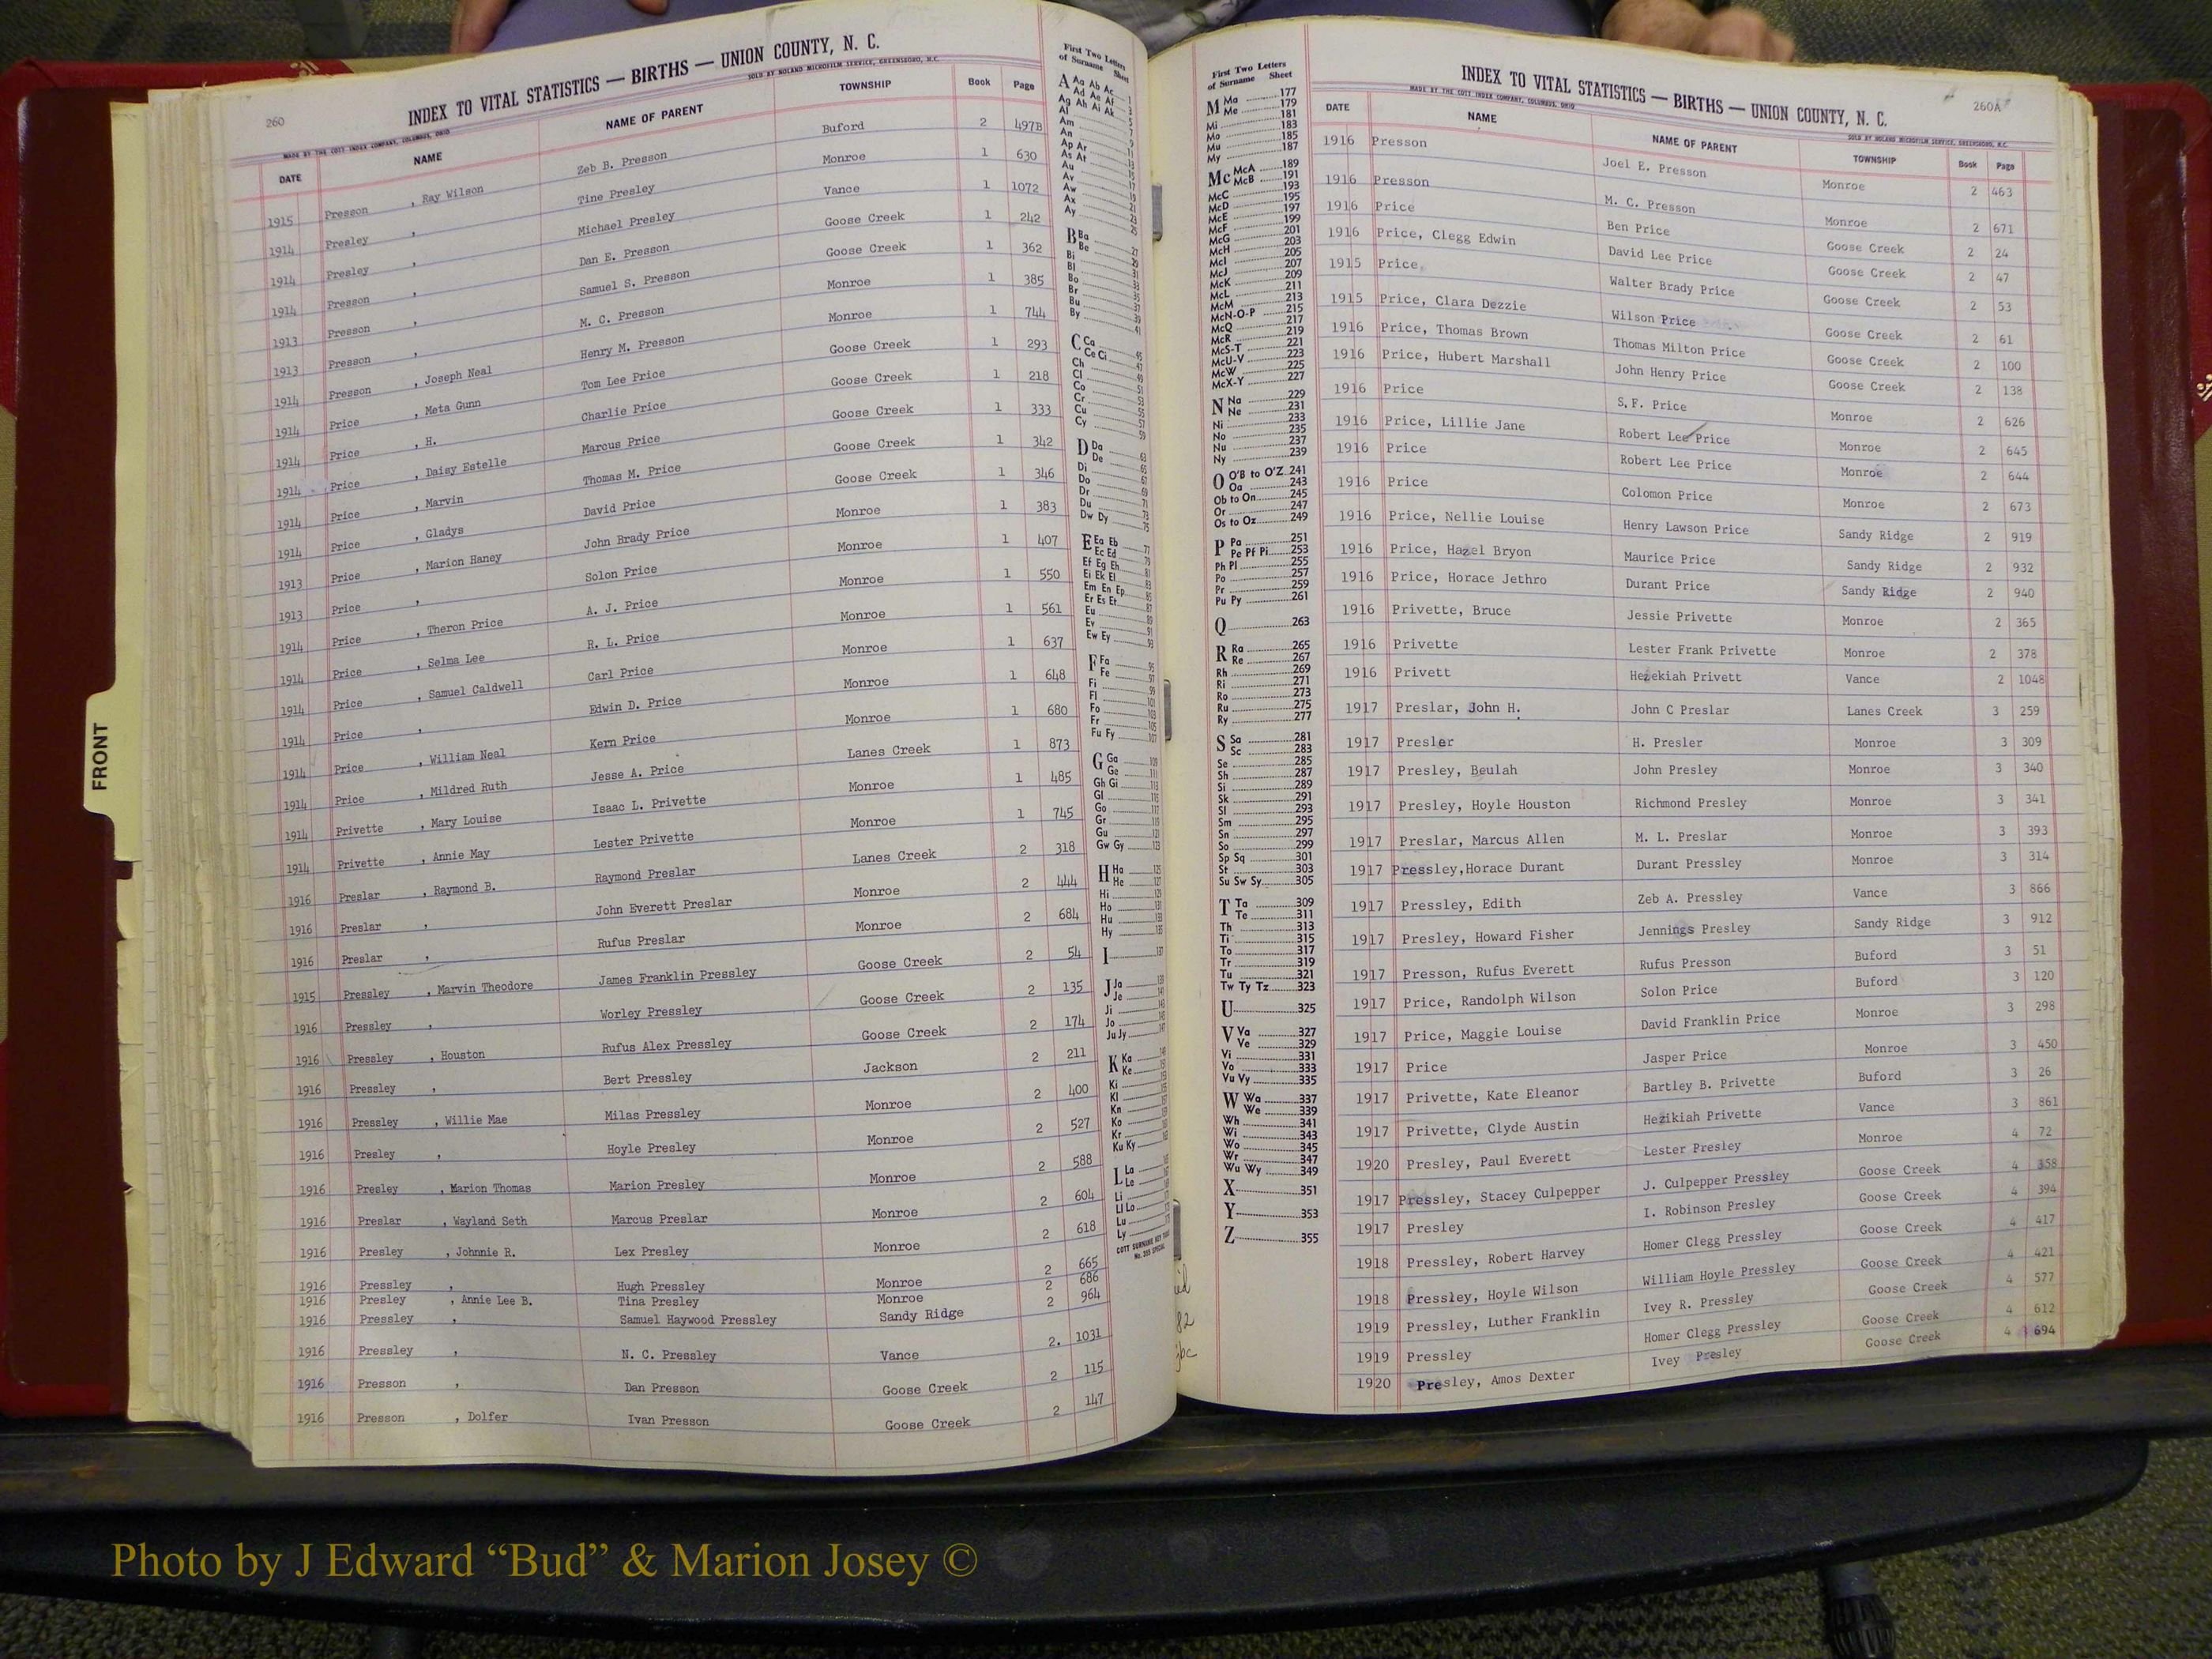 260
INDEX TO VITAL STATISTICS — BIRTHS — UNION COUNTY, N. C.
MADE BY THE COTT INDEX COMPANY, COLUMBUS, OHIO SOLD BY NOLAND MICROFILM SERVICE, GREENSBORO, N.C.
DATE NAME NAME OF PARENT TOWNSHIP Book Page
1915 Presson , Ray Wilson Zeb B. Presson Buford 2 497B
1914 Presley , Tine Presley Monroe 1 630
1914 Presley , Michael Presley Vance 1 1072
1914 Presson , Dan E. Presson Goose Creek 1 242
1913 Presson , Samuel S. Presson Goose Creek 1 362
1913 Presson , M. C. Presson Monroe 1 385
1914 Presson , Joseph Neal Henry M. Presson Monroe 1 744
1914 Price , Meta Gunn Tom Lee Price Goose Creek 1 293
1914 Price , H. Charlie Price Goose Creek 1 218
1914 Price , Daisy Estelle Marcus Price Goose Creek 1 333
1914 Price , Marvin Thomas M. Price Goose Creek 1 342
1914 Price , Gladys David Price Goose Creek 1 346
1913 Price , Marion Haney John Brady Price Monroe 1 383
1913 Price , Solon Price Monroe 1 407
1914 Price , Theron Price A. J. Price Monroe 1 550
1914 Price , Selma Lee R. L. Price Monroe 1 561
1914 Price , Samuel Caldwell Carl Price Monroe 1 637
1914 Price , Edwin D. Price Monroe 1 648
1914 Price , William Neal Kern Price Monroe 1 680
1914 Price , Mildred Ruth Jesse A. Price Lanes Creek 1 873
1914 Privette , Mary Louise Isaac L. Privette Monroe 1 485
1914 Privette , Annie May Lester Privette Monroe 1 745
1916 Preslar , Raymond B. Raymond Preslar Lanes Creek 2 318
1916 Preslar , John Everett Preslar Monroe 2 444
1916 Preslar , Rufus Preslar Monroe 2 684
1915 Pressley , Marvin Theodore James Franklin Pressley Goose Creek 2 54
1916 Pressley , Worley Pressley Goose Creek 2 135
1916 Pressley , Houston Rufus Alex Pressley Goose Creek 2 174
1916 Pressley , Bert Pressley Jackson 2 211
1916 Pressley , Willie Mae Milas Pressley Monroe 2 400
1916 Presley , Hoyle Presley Monroe 2 527
1916 Presley , Marion Thomas Marion Presley Monroe 2 588
1916 Preslar , Wayland Seth Marcus Preslar Monroe 2 604
1916 Presley , Johnnie R. Lex Presley Monroe 2 618
1916 Pressley , Hugh Pressley Monroe 2 665
1916 Presley , Annie Lee B. Tina Presley Monroe 2 686
1916 Pressley , Samuel Haywood Pressley Sandy Ridge 2 964
1916 Pressley , N. C. Pressley Vance 2. 1031
1916 Presson , Dan Presson Goose Creek 2 115
1916 Presson , Dolfer Ivan Presson Goose Creek 2 147
FRONT
First Two Letters
of Surname Sheet
A Aa Ab Ac
Ad Ae Af
Ag Ah Ai Ak
Al
Am
An
Ap Ar
As At
Au
Av
Aw
Ax
Ay
B Ba
Be
Bi
Bl
Bo
Br
Bu
By
C Ca
Ce Ci
Ch
Cl
Co
Cr
Cu
Cy
D Da
De
Di
Do
Dr
Du
Dw Dy
E Ea Eb
Ec Ed
Ef Eg Eh
Ei Ek El
Em En Ep
Er Es Et
Eu
Ev
Ew Ey
F Fa
Fe
Fi
Fl
Fo
Fr
Fu Fy
G Ga
Ge
Gh Gi
Gl
Go
Gr
Gu
Gw Gy
H Ha
He
Hi
Ho
Hu
Hy
I
J Ja
Je
Ji
Jo
Ju Jy
K Ka
Ke
Ki
Kl
Kn
Ko
Kr
Ku Ky
L La
Le
Li
Ll Lo
Lu
Ly
First Two Letters
of Surname Sheet
M Ma 177
Me 179
Mi 181
Mo 183
Mu 185
My 187
Mc McA 189
McB 191
McC 193
McD 195
McE 197
McF 199
McG 201
McH 203
McI 205
McJ 207
McK 209
McL 211
McM 213
McN-O-P 215
McQ 217
McR 219
McS-T 221
McU-V 223
McW 225
McX-Y 227
N Na 229
Ne 231
Ni 233
No 235
Nu 237
Ny 239
O O'B to O'Z 241
Oa 243
Ob to On 245
Or 247
Os to Oz 249
P Pa 251
Pe Pf Pi 253
Ph Pl 255
Po 257
Pr 259
Pu Py 261
Q 263
R Ra 265
Re 267
Rh 269
Ri 271
Ro 273
Ru 275
Ry 277
S Sa 281
Sc 283
Se 285
Sh 287
Si 289
Sk 291
Sl 293
Sm 295
Sn 297
So 299
Sp Sq 301
St 303
Su Sw Sy 305
T Ta 309
Te 311
Th 313
Ti 315
To 317
Tr 319
Tu 321
Tw Ty Tz 323
U 325
V Va 327
Ve 329
Vi 331
Vo 333
Vu Vy 335
W Wa 337
We 339
Wh 341
Wi 343
Wo 345
Wr 347
Wu Wy 349
X 351
Y 353
Z 355
260A
INDEX TO VITAL STATISTICS — BIRTHS — UNION COUNTY, N. C.
MADE BY THE COTT INDEX COMPANY, COLUMBUS, OHIO SOLD BY NOLAND MICROFILM SERVICE, GREENSBORO, N.C.
DATE NAME NAME OF PARENT TOWNSHIP Book Page
1916 Presson Joel E. Presson Monroe 2 463
1916 Presson M. C. Presson Monroe 2 671
1916 Price Ben Price Goose Creek 2 24
1916 Price, Clegg Edwin David Lee Price Goose Creek 2 47
1915 Price, Walter Brady Price Goose Creek 2 53
1915 Price, Clara Dezzie Wilson Price Goose Creek 2 61
1916 Price, Thomas Brown Thomas Milton Price Goose Creek 2 100
1916 Price, Hubert Marshall John Henry Price Goose Creek 2 138
1916 Price S.F. Price Monroe 2 626
1916 Price, Lillie Jane Robert Lee Price Monroe 2 645
1916 Price Robert Lee Price Monroe 2 644
1916 Price Colomon Price Monroe 2 673
1916 Price, Nellie Louise Henry Lawson Price Sandy Ridge 2 919
1916 Price, Hazel Bryon Maurice Price Sandy Ridge 2 932
1916 Price, Horace Jethro Durant Price Sandy Ridge 2 940
1916 Privette, Bruce Jessie Privette Monroe 2 365
1916 Privette Lester Frank Privette Monroe 2 378
1916 Privett Hezekiah Privett Vance 2 1048
1917 Preslar, John H. John C Preslar Lanes Creek 3 259
1917 Presler H. Presler Monroe 3 309
1917 Presley, Beulah John Presley Monroe 3 340
1917 Presley, Hoyle Houston Richmond Presley Monroe 3 341
1917 Preslar, Marcus Allen M. L. Preslar Monroe 3 393
1917 Pressley,Horace Durant Durant Pressley Monroe 3 314
1917 Pressley, Edith Zeb A. Pressley Vance 3 866
1917 Presley, Howard Fisher Jennings Presley Sandy Ridge 3 912
1917 Presson, Rufus Everett Rufus Presson Buford 3 51
1917 Price, Randolph Wilson Solon Price Buford 3 120
1917 Price, Maggie Louise David Franklin Price Monroe 3 298
1917 Price Jasper Price Monroe 3 450
1917 Privette, Kate Eleanor Bartley B. Privette Buford 3 26
1917 Privette, Clyde Austin Hezikiah Privette Vance 3 861
1920 Presley, Paul Everett Lester Presley Monroe 4 72
1917 Pressley, Stacey Culpepper J. Culpepper Pressley Goose Creek 4 358
1917 Presley I. Robinson Presley Goose Creek 4 394
1918 Pressley, Robert Harvey Homer Clegg Pressley Goose Creek 4 417
1918 Pressley, Hoyle Wilson William Hoyle Pressley Goose Creek 4 421
1919 Pressley, Luther Franklin Ivey R. Pressley Goose Creek 4 577
1919 Pressley Homer Clegg Pressley Goose Creek 4 612
1920 Presley, Amos Dexter Ivey Presley Goose Creek 4 694
Photo by J Edward “Bud” & Marion Josey ©